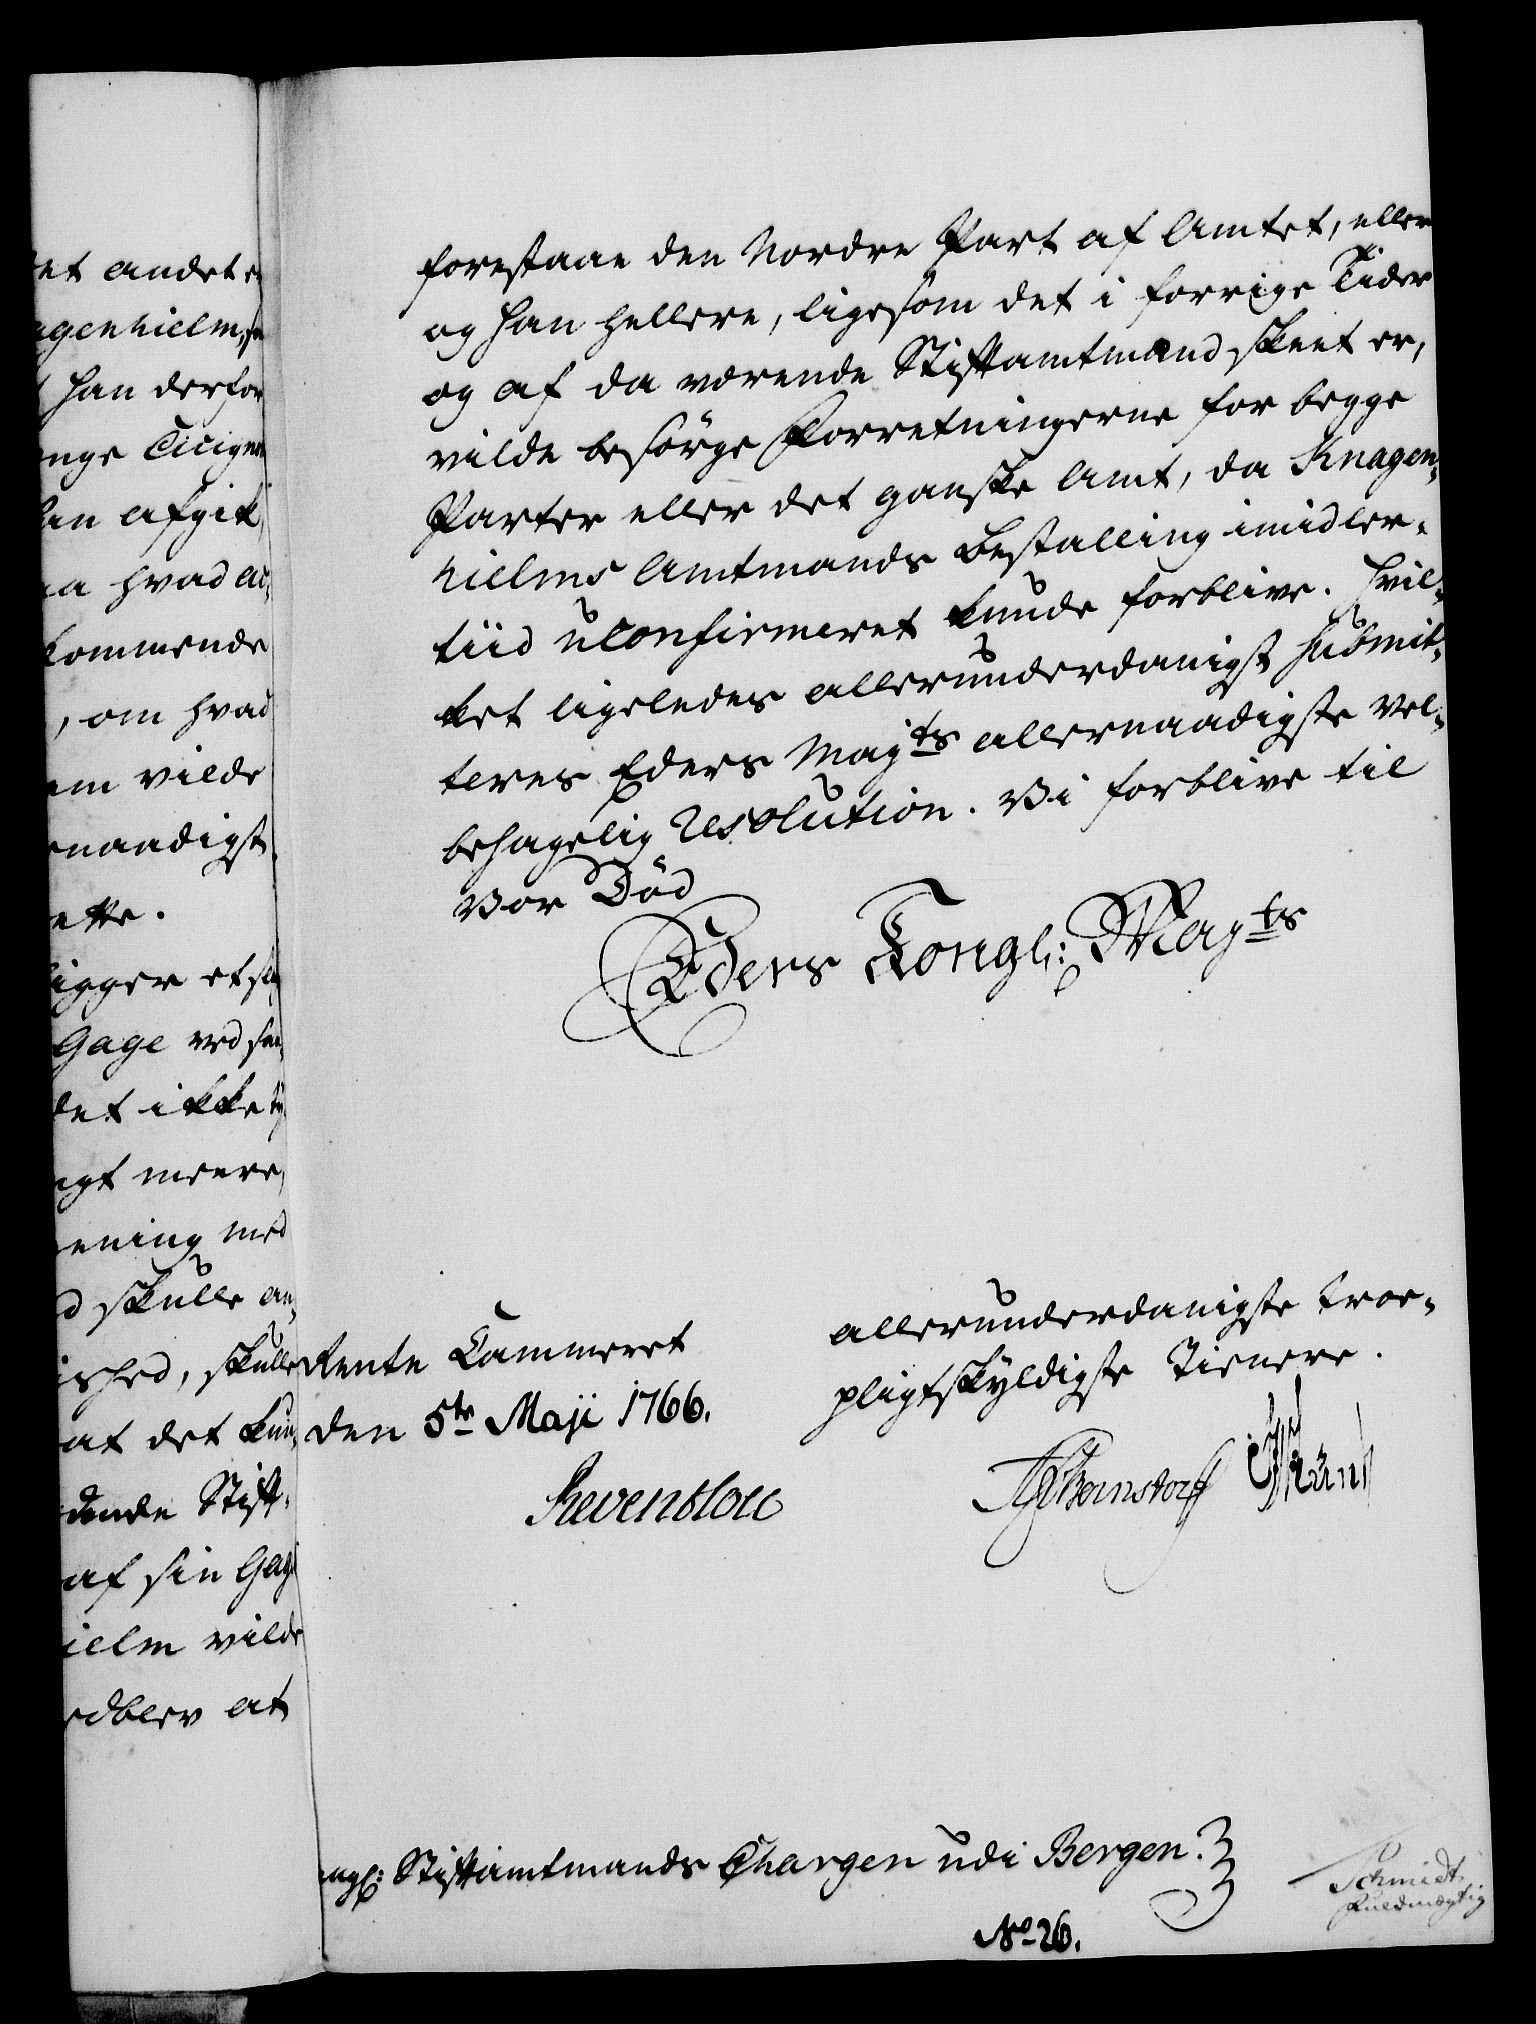 et andet e
agenhielm, so
han derfor
enge Cicign
han afgik
aa hvad A
kommende
, om hvad
em vilde
rnaadigst
ette.
ligger et sl
Gage ved
det ikke
igt meere,
ening med
d skulle an-
ished, skulle
at det kun-
dende Stift-
af sin Gage
ielm vilde
edblev at
forestaae den Nordre Part af Amtet, eller
og han hellere, ligesom det i forrige Tider
og af da værende Stiftamtmænd skeet er,
vilde besörge Forretningerne for begge
Parter eller det ganske Amt, da Knagen-
hielms Amtmands Bestalling imidler-
tiid uconfirmeret kunde forblive. Hvil-
ket ligeledes allerunderdanigst submit-
teres Eders Mayts allernaadigste Vel-
behagelig Resolution. Vi forblive til
Vor Död
Eders Kongl: Mayts
allerunderdanigste troe-
pligtskyldigste Tienere.
Rente Cammeret
den 5te Maji 1766.
Reventlou
AP Bernstorff
ngl: Stiftamtmands Chargen udi Bergen.
No 26.
Schmidt
Fuldmægtig